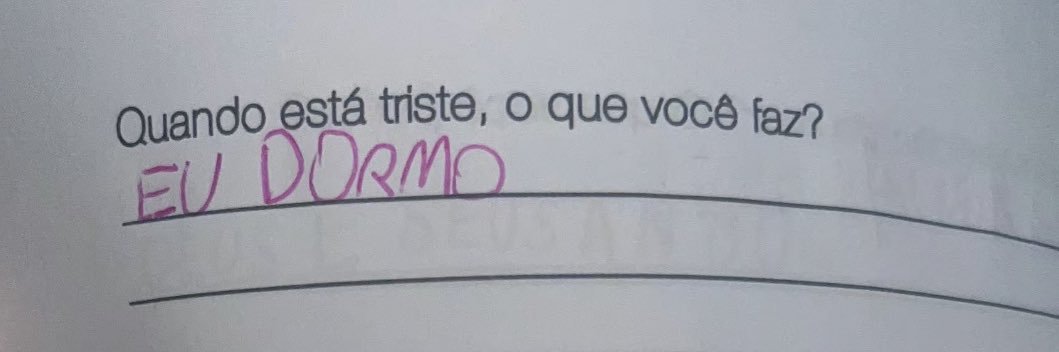 Quando está triste, o que você faz?
EU DORMO